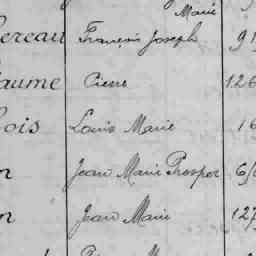 Marie
ereau François Joseph 91
aume Pierre 126
ois Louis Marie 16
n Jean Marie Prosper 6
n Jean Marie 127